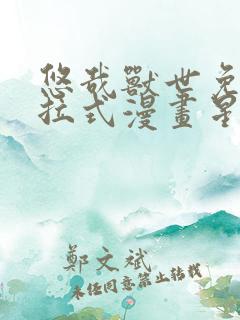 悠哉獸世免
拉式漫畫星
鄭文斌
未经同意禁止转载